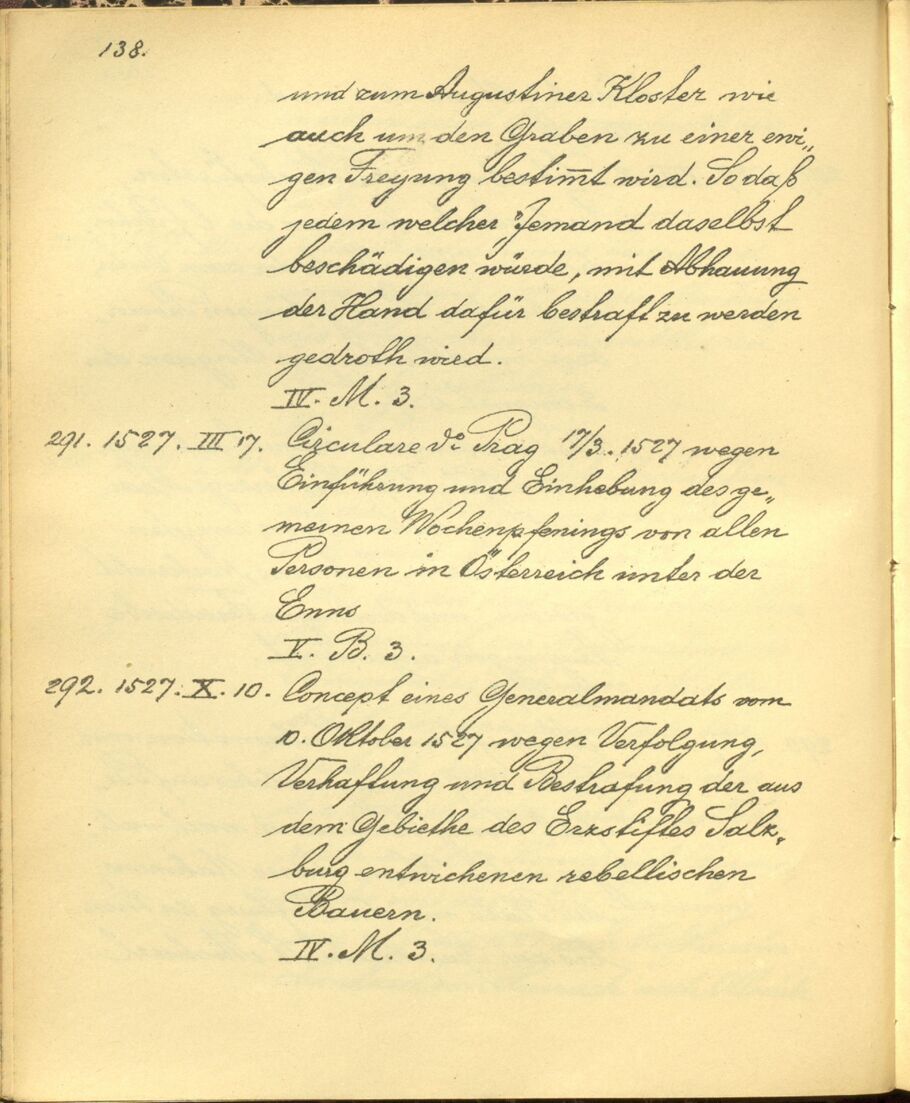 138.
und zum Augustiner Kloster wie
auch um den Graben zu einer ewi„
gen Freyung bestim̅t wird. So daß
jedem welcher Jemand daselbst
beschädigen würde, mit Abhauung
der Hand dafür bestraft zu werden
gedroth wird.
IV. M. 3.
291. 1527. III 17. Circulare dº Prag 17/3. 1527 wegen
Einführung und Einhebung des ge„
meinen Wochenpfenings von allen
Personen in Österreich unter der
Enns
V. B. 3.
292. 1527. X. 10. Concept eines Generalmandats vom
10. Oktober 1527 wegen Verfolgung,
Verhaftung und Bestrafung der aus
dem Gebiethe des Erzstiftes Salz„
burg entwichenen rebellischen
Bauern.
IV. M. 3.